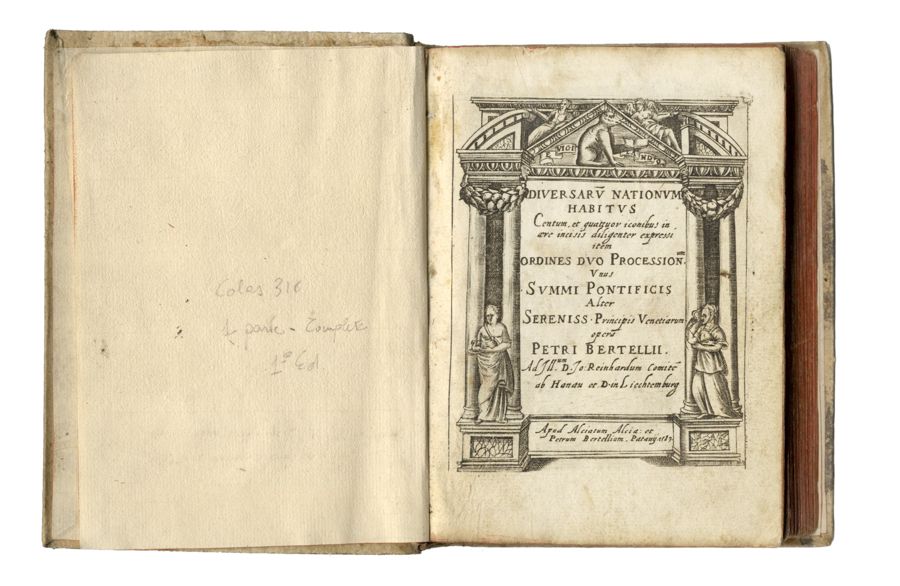 Colas 310
1 parte - Complete
1ª Ed
VIGI
NDO
DIVERSARŪ NATIONVM
HABITVS
Centum, et quattuor iconibus in
ære incisis diligenter expressi
item
ORDINES DVO PROCESSION.um
Vnus
SVMMI PONTIFICIS
Alter
SERENISS. Principis Venetiarum
opera
PETRI BERTELLII.
Ad Ill.um D. Jo: Reinhardum Comitē
ab Hanau et D. in Liechtemburg
Apud Alciatum Alcia: et
Petrum Bertellium. Patauij.